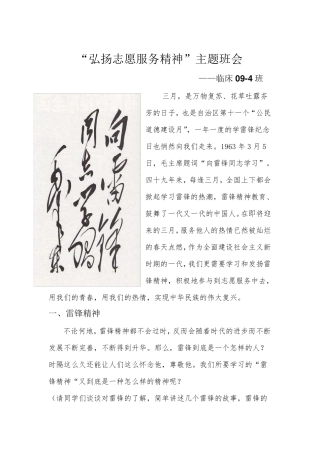 “弘扬志愿服务精神”主题班会
——临床 09-4 班
向雷锋
同志学习
毛泽东
三月，是万物复苏、花草吐露芬
芳的日子。也是自治区第十一个“公民
道德建设月”，一年一度的学雷锋纪念
日也悄然向我们走来。1963 年 3 月 5
日，毛主席题词“向雷锋同志学习”。
四十九年来，每逢三月，全国上下都会
掀起学习雷锋的热潮，雷锋精神教育、
鼓舞了一代又一代的中国人。在即将迎
来的三月，服务他人的热情已然被灿烂
的春天点燃，作为全面建设社会主义新
时期的一代，我们更需要学习和发扬雷
锋精神，积极地参与到志愿服务中去，
用我们的青春，用我们的热情，实现中华民族的伟大复兴。
一、雷锋精神
不论何地，雷锋精神都不会过时，反而会随着时代的进步而不断
发展不断完善，不断得到升华。那么，雷锋到底是一个怎样的人？
时隔这么久还能让人们这么怀念他，尊敬他。我们所要学习的“雷
锋精神“又到底是一种怎么样的精神呢？
（请同学们谈谈对雷锋的了解，简单讲述几个雷锋的故事，雷锋的